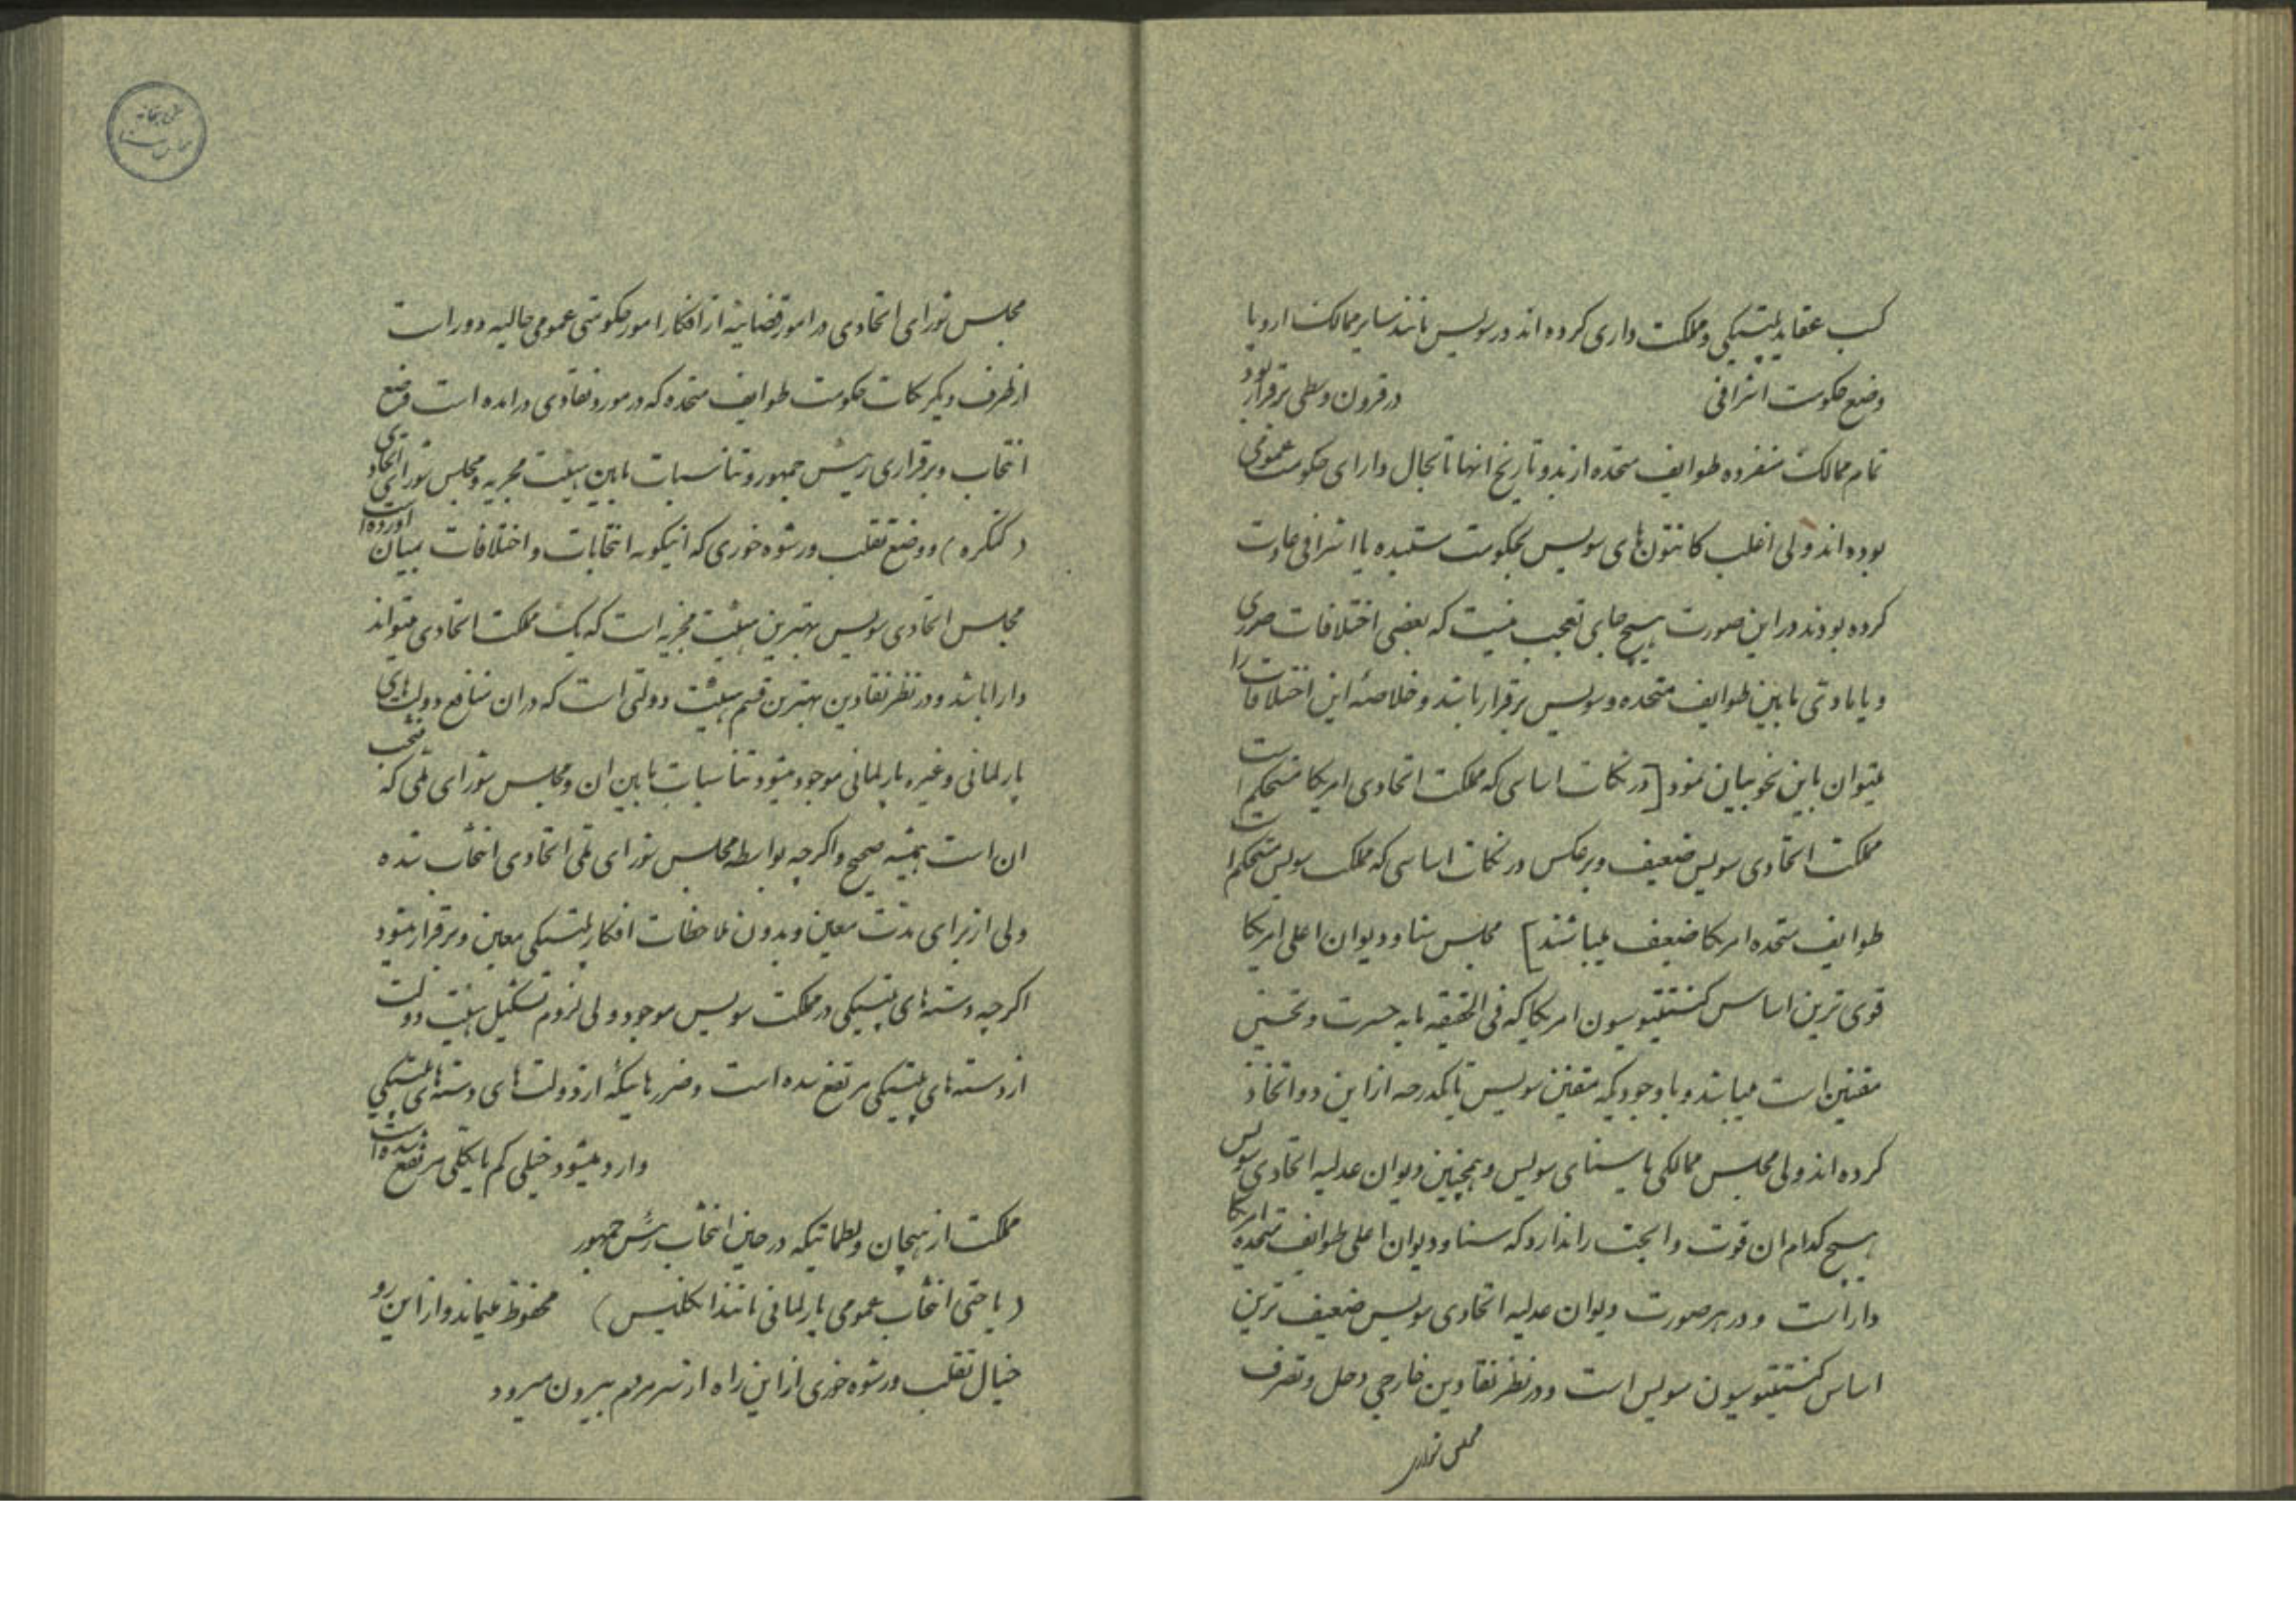 کسب عقاید پلتیکی و مملکت داری کرده اند در سویس مانند سایر ممالک اروپا
وضع حکومت اشرافی در قرون وسطی برقرار بود
تمام ممالک منفرده طوایف متحده از بدو تاریخ انها تا بحال دارای حکومت عمومی
بوده اند ولی اغلب کانتون های سویس بحکومت مستبده یا اشرافی عادت
کرده بودند در این صورت هیچ جای تعجب نیست که بعضی اختلافات صوری
و یا مادی مابین طوایف متحده و سویس برقرار باشد و خلاصهٔ این اختلافات را
میتوان باین نحو بیان نمود [در نکات اساسی که مملکت اتحادی امریکا مستحکم است
مملکت اتحادی سویس ضعیف و برعکس در نکات اساسی که مملکت سویس مستحکم است
طوایف متحده امریکا ضعیف میباشند] مجلس سنا و دیوان اعلی امریکا
قوی ترین اساس کنستیتوسیون امریکا که فی الحقیقه مایه حسرت و تحسین
مقننین است میباشد و با وجودیکه مقنین سویس تا یکدرجه از این دو اتخاذ
کرده اند ولی مجلس ممالکی یا سنای سویس و همچنین دیوان عدلیه اتحادی سویس
هیچ کدام ان قوت و ابهت را ندارد که سنا و دیوان اعلی طوایف متحده امریکا
داراست و در هر صورت دیوان عدلیه اتحادی سویس ضعیف ترین
اساس کنستیتوسیون سویس است و در نظر نقادین خارجی دخل و تصرف
مجلس شورای
مجلس شورای اتحادی در امور قضائیه از افکار امور حکومتی عمومی حالیه دور است
از طرف دیگر نکات حکومت طوایف متحده که در مورد نقادی درامده است وضع
انتخاب و برقراری رئیس جمهور و تناسبات مابین هیئت مجریه و مجلس شورای اتحادی
(کنگره) و وضع تقلب و رشوه خوری که اینگونه انتخابات و اختلافات بمیان اورده است
مجلس اتحادی سویس بهترین هیئت مجریه است که یک مملکت اتحادی میتواند
دارا باشد و در نظر نقادین بهترین قسم هیئت دولتی است که در ان منافع دولت های
پارلمانی و غیره پارلمانی موجود میشود تناسبات مابین ان و مجلس شورای ملی که منتخب
ان است همیشه صحیح و اگرچه بواسطه مجلس شورای ملی اتحادی انتخاب شده
ولی از برای مدت معین و بدون ملاحظات افکار پلتیکی معین و برقرار میشود
اگرچه دسته های پلتیکی در مملکت سویس موجود ولی لزوم تشکیل هیئت دولت
از دسته های پلتیکی مرتفع شده است و ضررهائیکه از دولت های دسته های پلتیکی
وارد میشود خیلی کم یا بکلی مرتفع شده است
مملکت از هیجان و لطماتیکه در حین انتخاب رئیس جمهور
(یا حتی انتخاب عمومی پارلمانی مانند انگلیس) محفوظ میماند و از این رو
خیال تقلب و رشوه خوری از این راه از سر مردم بیرون میرود